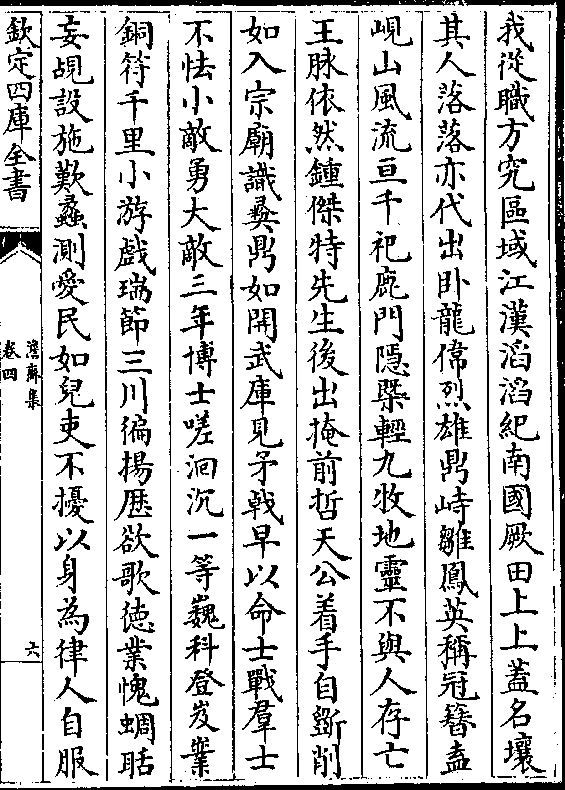 我從職方究區域江漢滔滔紀南國厥田上上蓋名壤
其人落落亦代出卧龍偉烈雄鼎峙雛鳳英稱冠簪盍
峴山風流亘千祀鹿門隱槩輕九牧地靈不與人存亡
王脉依然鍾傑特先生後出掩前哲天公着手自斵削
如入宗廟識彜鼎如開武庫見矛戟早以命士戰羣士
不怯小敵勇大敵三年博士嗟洄沉一等巍科登岌嶪
銅符千里小游戲瑞節三川徧揚歴欲歌徳業愧蜩聒
妄覘設施歎蠡測愛民如兒吏不擾以身為律人自服
欽定四庫全書
澹齋集
卷四
六